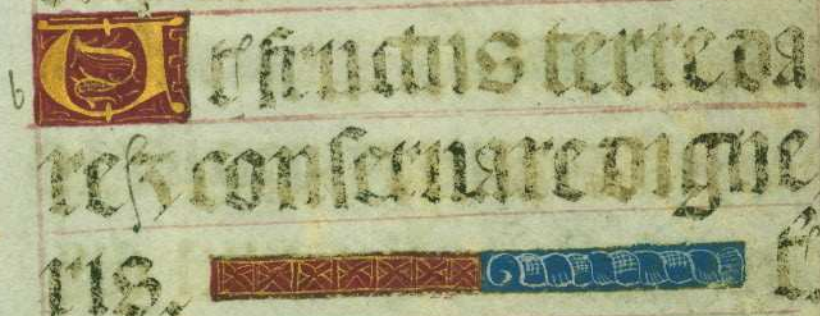 b Ut fructus terre da
re & conseruare digne
ris.